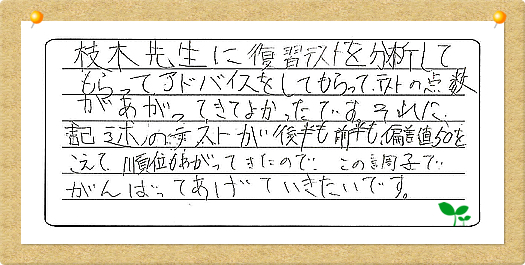 枝木先生に復習テストを分析して
もらってアドバイスをしてもらって、テストの点数
があがってきてよかったです。それに、
記述のテストが後半も前半も、偏差値50を
こえて、順位もあがってきたので、この調子で
がんばってあげていきたいです。